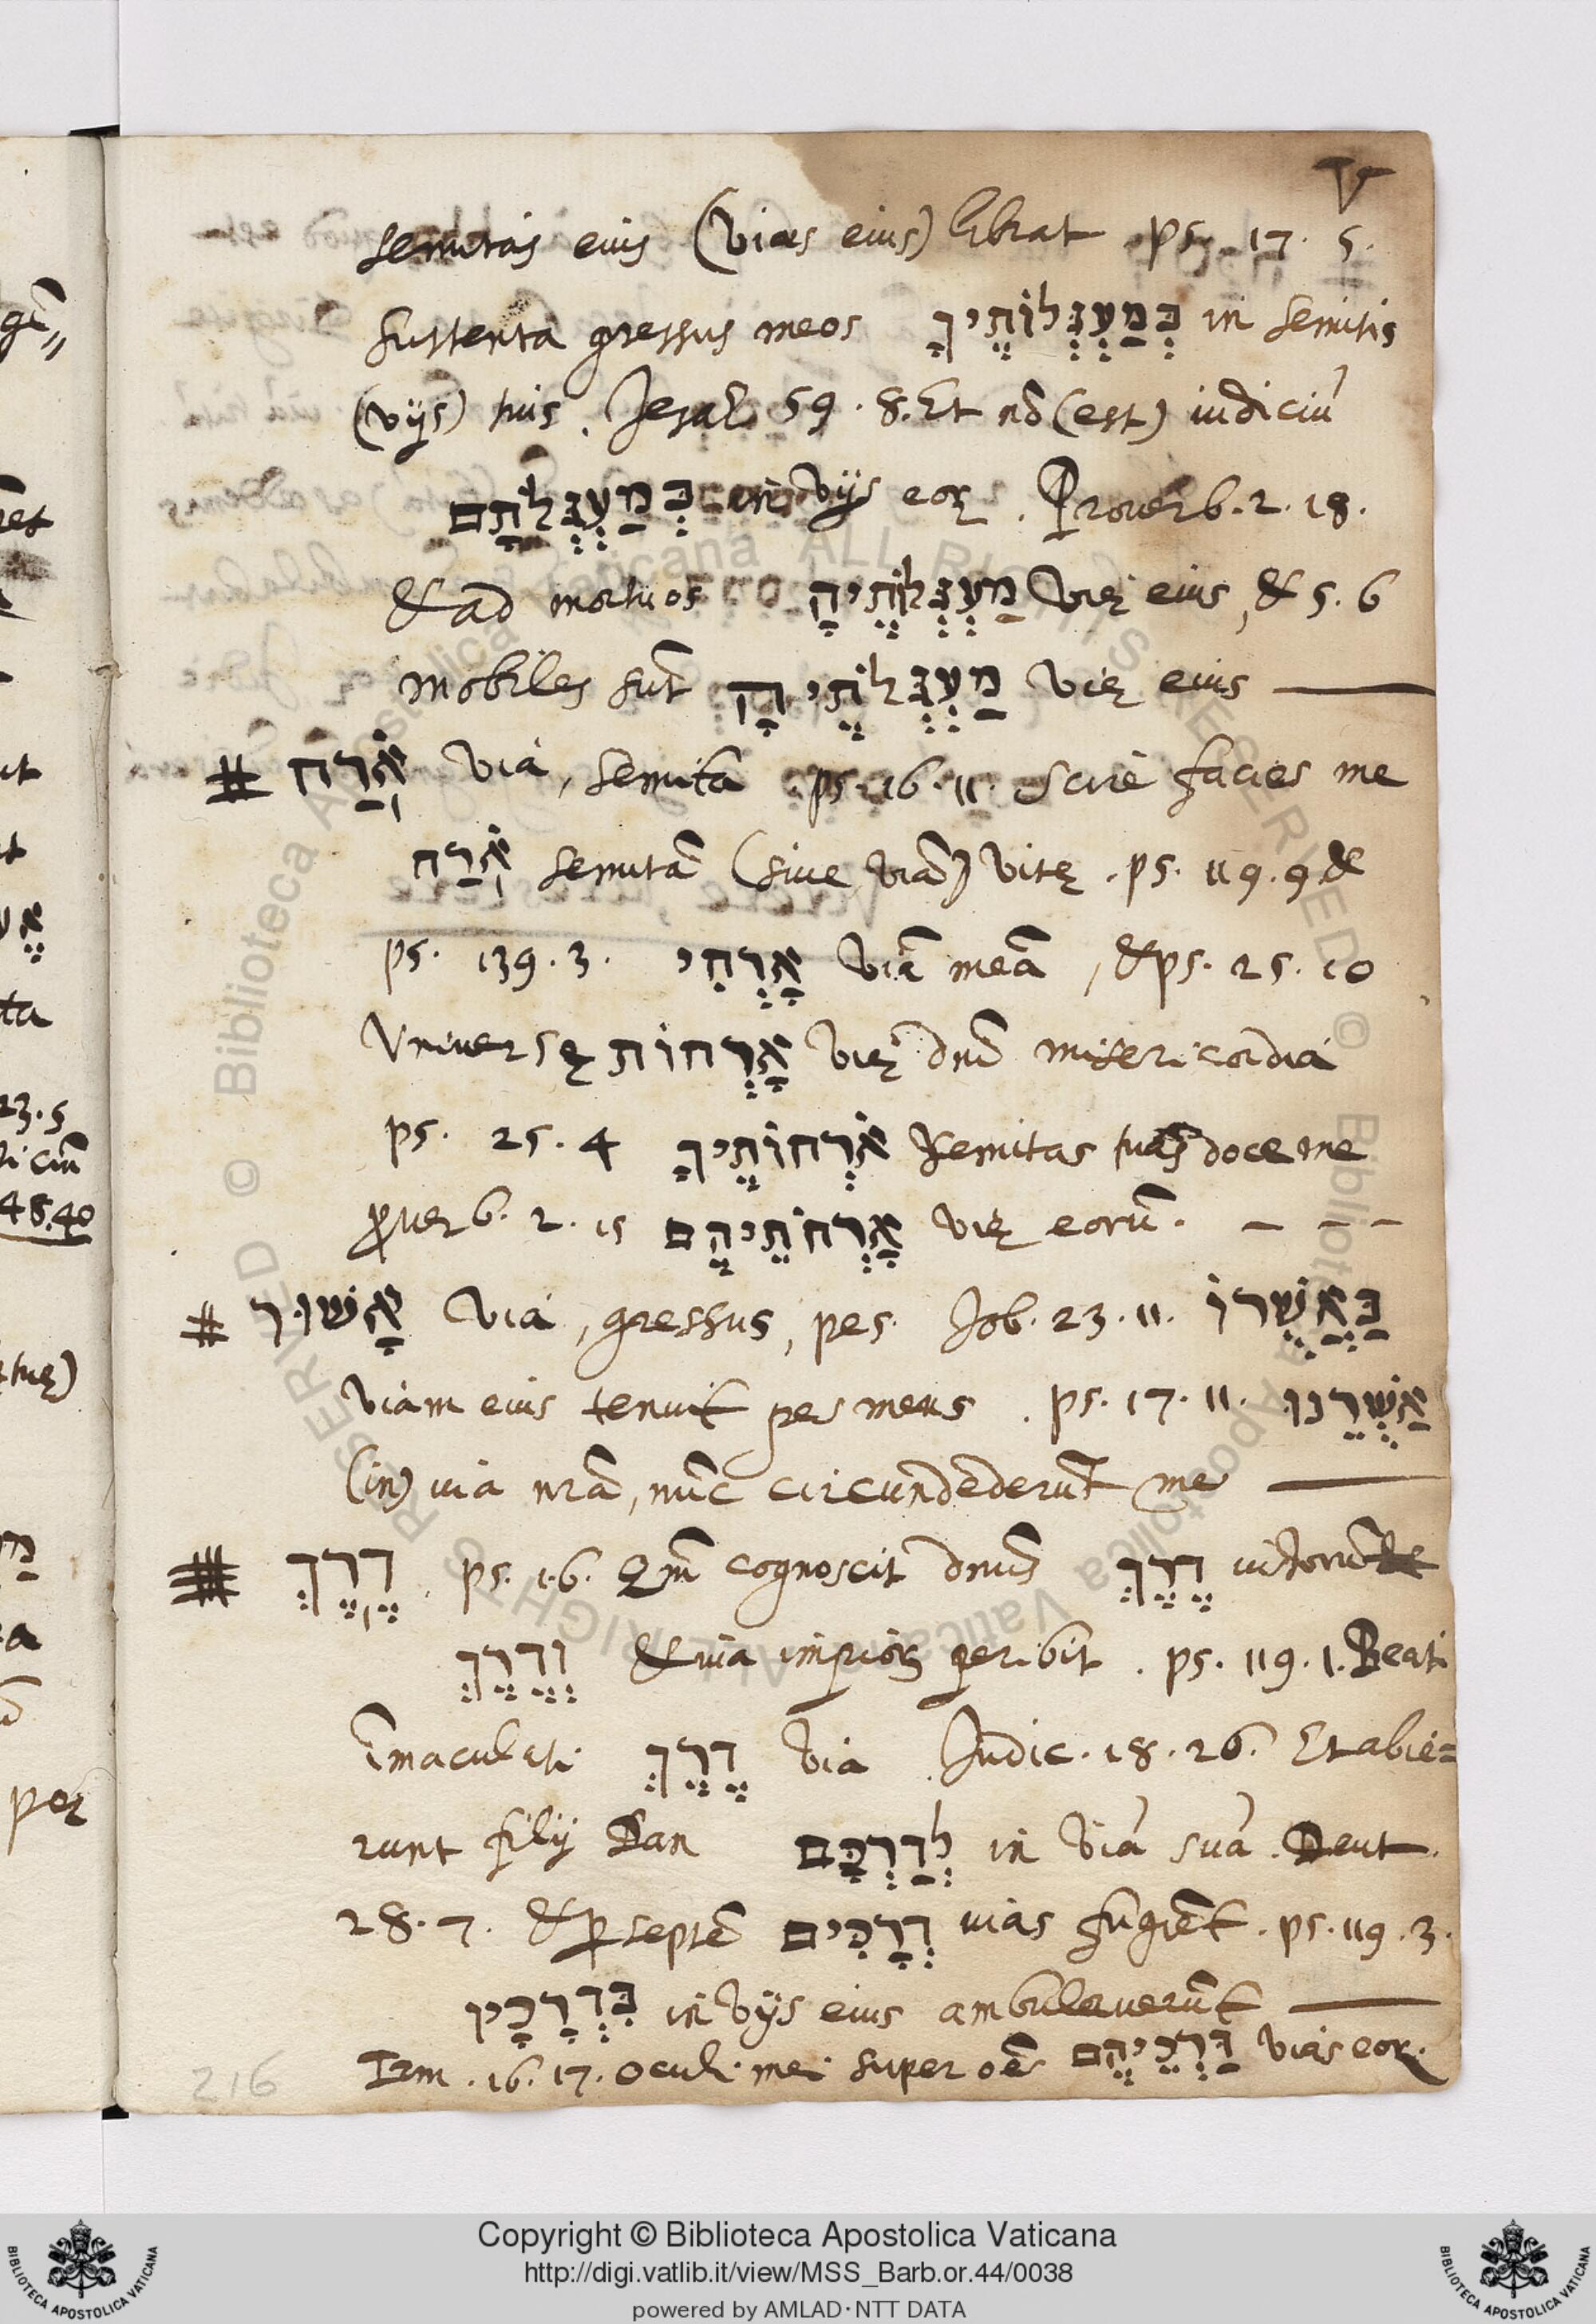 semitas eius (vias eius) librat ps. 17. 5.
sustenta gressus meos בְּמַעְגְּלוֹתֶיךָ in semitis
(vijs) tuis. Jesai 59. 8. Et nō (est) iudiciū
בְּמַעְגְּלֹתָם in vijs eoꝝ. Proverb. 2. 18.
& ad mortuos מַעְגְּלֹתֶיהָ vię eius, & 5. 6
mobiles sūt מַעְגְּלֹתֶיהָ vię eius —
# אֹרַח via, semita ps. 16. 11. Scire facies me
אֹרַח semitā (sive viā) vitę. ps. 119. 9. &
ps. 139. 3. אָרְחִי viā meā, & ps. 25. 10
Universę אָרְחוֹת vię dnī misericordia
ps. 25. 4 אֹרְחוֹתֶיךָ semitas tuas doce me
ꝓverb. 2. 15 אָרְחֹתֵיהֶם vię eorū. – – –
# אָשׁוּר via, gressus, pes. Job. 23. 11. בַּאֲשֻׁרוֹ
viam eius tenuit pes meus. ps. 17. 11. אַשֻּׁרֵנוּ
(in) via nrā, nūc circundederūt me —
# דֶרֶךְ. ps. 1. 6. Qm̄ cognoscit dnus דֶרֶךְ iustorum
וְדֶרֶךְ & via impioꝝ peribit. ps. 119. 1. Beati
īmaculati דֶרֶךְ via Judic. 18. 26. Et abie=
runt filij Dan לְדַרְכָּם in viā suā. Deut.
28. 7. & ꝑ septē דְרָכִים vias fugiēt. ps. 119. 3.
בִּדְרָכָיו in vijs eius ambulaverūt —
Irm. 16. 17. Oculi mei super oēs דַּרְכֵיהֶם vias eoꝝ.
216
Copyright © Biblioteca Apostolica Vaticana
http://digi.vatlib.it/view/MSS_Barb.or.44/0038
powered by AMLAD·NTT DATA